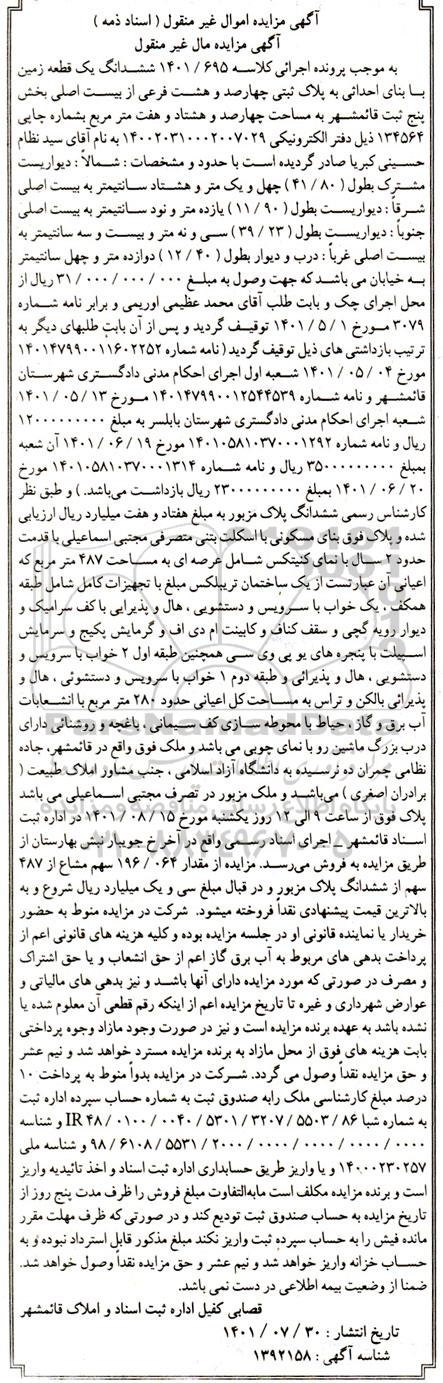 آگهی مزایده اموال غیر منقول ( اسناد ذمه )
آگهی مزایده مال غیر منقول
به موجب پرونده اجرائی کلاسه ۶۹۵ / ۱۴۰۱ ششدانگ یک قطعه زمین
با بنای احداثی به پلاک ثبتی چهارصد و هشت فرعی از بیست اصلی بخش
پنج ثبت قائمشهر به مساحت چهارصد و هشتاد و هفت متر مربع بشماره چاپی
۱۳۴۵۶۴ ذیل دفتر الکترونیکی ۱۴۰۰۲۰۳۱۰۰۰۲۰۰۷۰۲۹ به نام آقای سید نظام
حسینی کبریا صادر گردیده است با حدود و مشخصات : شمالاً : دیواریست
مشترک بطول ( ۸۰ / ۴۱ ) چهل و یک متر و هشتاد سانتیمتر به بیست اصلی
شرقاً : دیواریست بطول ( ۹۰ / ۱۱ ) یازده متر و نود سانتیمتر به بیست اصلی
جنوباً : دیواریست بطول ( ۲۳ / ۳۹ ) سی و نه متر و بیست و سه سانتیمتر به
بیست اصلی غرباً : درب و دیوار بطول ( ۴۰ / ۱۲ ) دوازده متر و چهل سانتیمتر
به خیابان می باشد که جهت وصول به مبلغ ۰۰۰ / ۰۰۰ / ۰۰۰ / ۳۱ ریال از
محل اجرای چک و بابت طلب آقای محمد عظیمی اوریمی و برابر نامه شماره
۳۰۷۹ مورخ ۱ / ۵ / ۱۴۰۱ توقیف گردید و پس از آن بابت طلبهای دیگر به
ترتیب بازداشتی های ذیل توقیف گردید ( نامه شماره ۱۴۰۱۴۷۹۹۰۰۱۱۶۰۲۲۵۲
مورخ ۰۴ / ۰۵ / ۱۴۰۱ شعبه اول اجرای احکام مدنی دادگستری شهرستان
قائمشهر و نامه شماره ۱۴۰۱۴۷۹۹۰۰۱۲۵۴۴۵۳۹ مورخ ۱۳ / ۰۵ / ۱۴۰۱
شعبه اجرای احکام مدنی دادگستری شهرستان بابلسر به مبلغ ۱۲۰۰۰۰۰۰۰۰۰
ریال و نامه شماره ۱۴۰۱۰۵۸۱۰۳۷۰۰۰۱۲۹۲ مورخ ۱۹ / ۰۶ / ۱۴۰۱ آن شعبه
بمبلغ ۳۵۰۰۰۰۰۰۰۰۰ ریال و نامه شماره ۱۴۰۱۰۵۸۱۰۳۷۰۰۰۱۳۱۴ مورخ
۲۰ / ۰۶ / ۱۴۰۱ بمبلغ ۲۳۰۰۰۰۰۰۰۰۰ ریال بازداشت می‌باشد. ) و طبق نظر
کارشناس رسمی ششدانگ پلاک مزبور به مبلغ هفتاد و هفت میلیارد ریال ارزیابی
شده و پلاک فوق بنای مسکونی با اسکلت بتنی متصرفی مجتبی اسماعیلی با قدمت
حدود ۲ سال با نمای کنیتکس شامل عرصه ای به مساحت ۴۸۷ متر مربع که
اعیانی آن عبارتست از یک ساختمان تریبلکس مبلغ با تجهیزات کامل شامل طبقه
همکف ، یک خواب با سرویس و دستشویی ، هال و پذیرایی با کف سرامیک و
دیوار رویه گچی و سقف کناف و کابینت ام دی اف و گرمایش پکیج و سرمایش
اسپیلت با پنجره های یو پی وی سی همچنین طبقه اول ۲ خواب با سرویس و
دستشویی ، هال و پذیرائی و طبقه دوم ۱ خواب با سرویس و دستشوئی ، هال و
پذیرائی بالکن و تراس به مساحت کل اعیانی حدود ۲۸۰ متر مربع با انشعابات
آب برق و گاز ، حیاط با محوطه سازی کف سیمانی ، باغچه و روشنائی دارای
درب بزرگ ماشین رو با نمای چوبی می باشد و ملک فوق واقع در قائمشهر، جاده
نظامی چمران ده نرسیده به دانشگاه آزاد اسلامی ، جنب مشاور املاک طبیعت (
برادران اصغری ) می‌باشد و ملک مزبور در تصرف مجتبی اسماعیلی می باشد
پلاک فوق از ساعت ۹ الی ۱۲ روز یکشنبه مورخ ۱۵ / ۰۸ / ۱۴۰۱ در اداره ثبت
اسناد قائمشهر _ اجرای اسناد رسمی واقع در آخرخ جویبار نبش بهارستان از
طریق مزایده به فروش می‌رسد. مزایده از مقدار ۰۶۴ / ۱۹۶ سهم مشاع از ۴۸۷
سهم از ششدانگ پلاک مزبور و در قبال مبلغ سی و یک میلیارد ریال شروع و به
بالاترین قیمت پیشنهادی نقداً فروخته میشود. شرکت در مزایده منوط به حضور
خریدار یا نماینده قانونی او در جلسه مزایده بوده و کلیه هزینه های قانونی اعم از
پرداخت بدهی های مربوط به آب برق گاز اعم از حق انشعاب و یا حق اشتراک
و مصرف در صورتی که مورد مزایده دارای آنها باشد و نیز بدهی های مالیاتی و
عوارض شهرداری و غیره تا تاریخ مزایده اعم از اینکه رقم قطعی آن معلوم شده یا
نشده باشد به عهده برنده مزایده است و نیز در صورت وجود مازاد وجوه پرداختی
بابت هزینه های فوق از محل مازاد به برنده مزایده مسترد خواهد شد و نیم عشر
و حق مزایده نقداً وصول می گردد. شرکت در مزایده بدواً منوط به پرداخت ۱۰
درصد مبلغ کارشناسی ملک رابه صندوق ثبت به شماره حساب سپرده اداره ثبت
به شماره شبا ۸۶ / ۵۵۰۳ / ۳۲۰۷ / ۵۳۰۱ / ۰۰۴۰ / ۰۱۰۰ / ۴۸ IR و شناسه
۰۰۰۰ / ۰۰۰۰ / ۰۰۰۰ / ۰۰۰۰ / ۲۰۰۰ / ۵۵۳۱ / ۶۱۰۸ / ۹۸ و شناسه ملی
۱۴۰۰۰۲۳۰۲۵۷ و یا واریز طریق حسابداری اداره ثبت اسناد و اخذ تائیدیه واریز
است و برنده مزایده مکلف است مابه‌التفاوت مبلغ فروش را ظرف مدت پنج روز از
تاریخ مزایده به حساب صندوق ثبت تودیع کند و در صورتی که ظرف مهلت مقرر
مانده فیش را به حساب سپرده ثبت واریز نکند مبلغ مذکور قابل استرداد نبوده و به
حساب خزانه واریز خواهد شد و نیم عشر و حق مزایده نقداً وصول خواهد شد.
ضمنا از وضعیت بیمه اطلاعی در دست نمی باشد.
قصابی کفیل اداره ثبت اسناد و املاک قائمشهر
تاریخ انتشار : ۳۰ / ۰۷ / ۱۴۰۱
شناسه آگهی : ۱۳۹۲۱۵۸